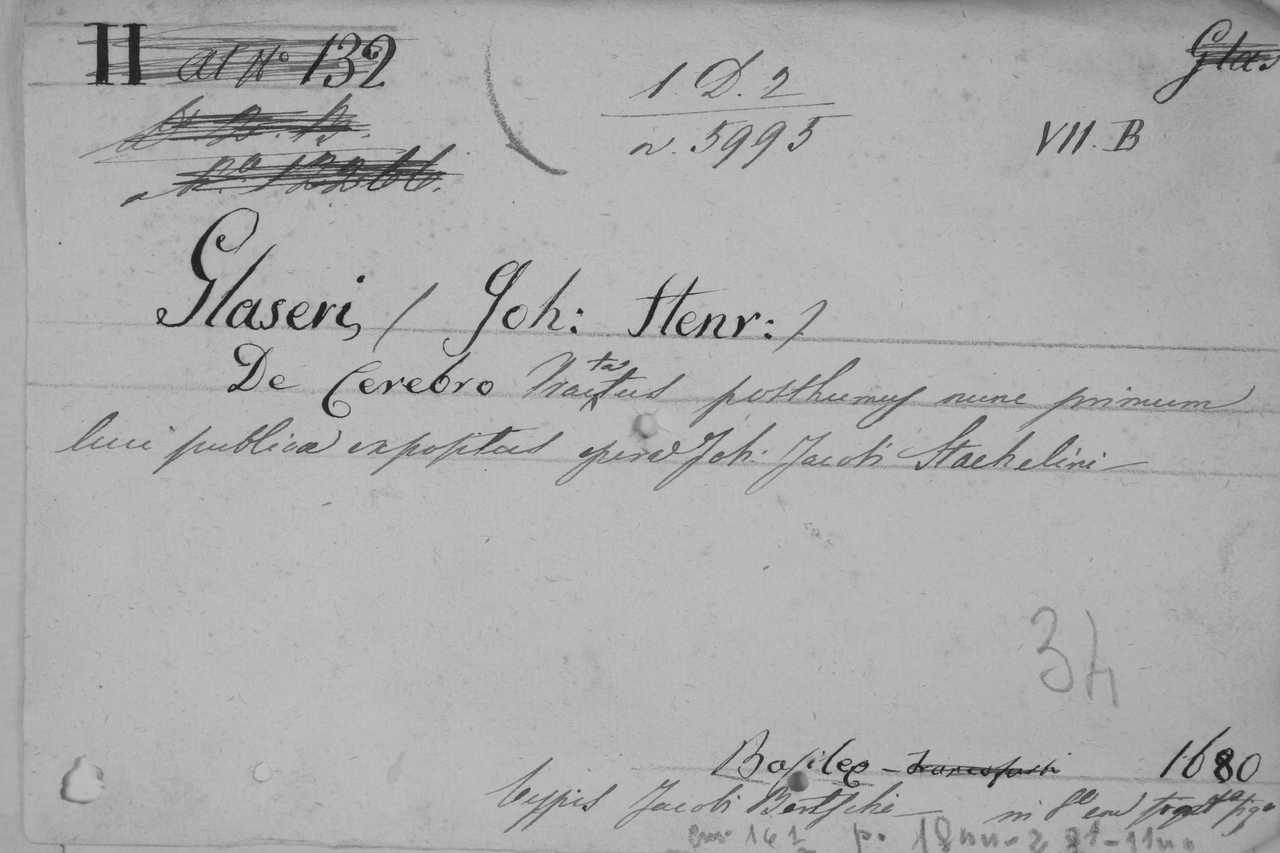 II al No 132
Glas
1. D. 2
n. 5995
VII. B
Glaseri, (Joh: Henr:)
De Cerebro Tractatus posthumus nunc primum
luci publicæ expositus opera Joh: Jacobi Staehelini
34
Basileæ - Francofurti 1680
typis Jacobi Bertschi in 8º